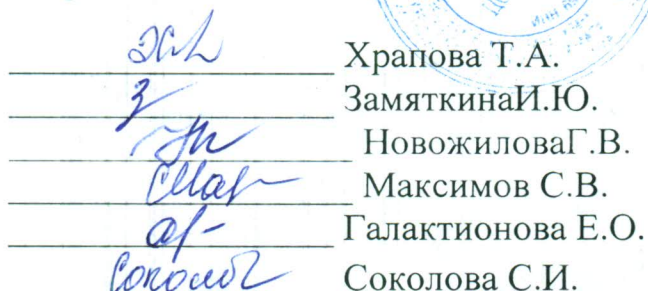 Храпова Т.А.
ЗамяткинаИ.Ю.
НовожиловаГ.В.
Максимов С.В.
Галактионова Е.О.
Соколова С.И.